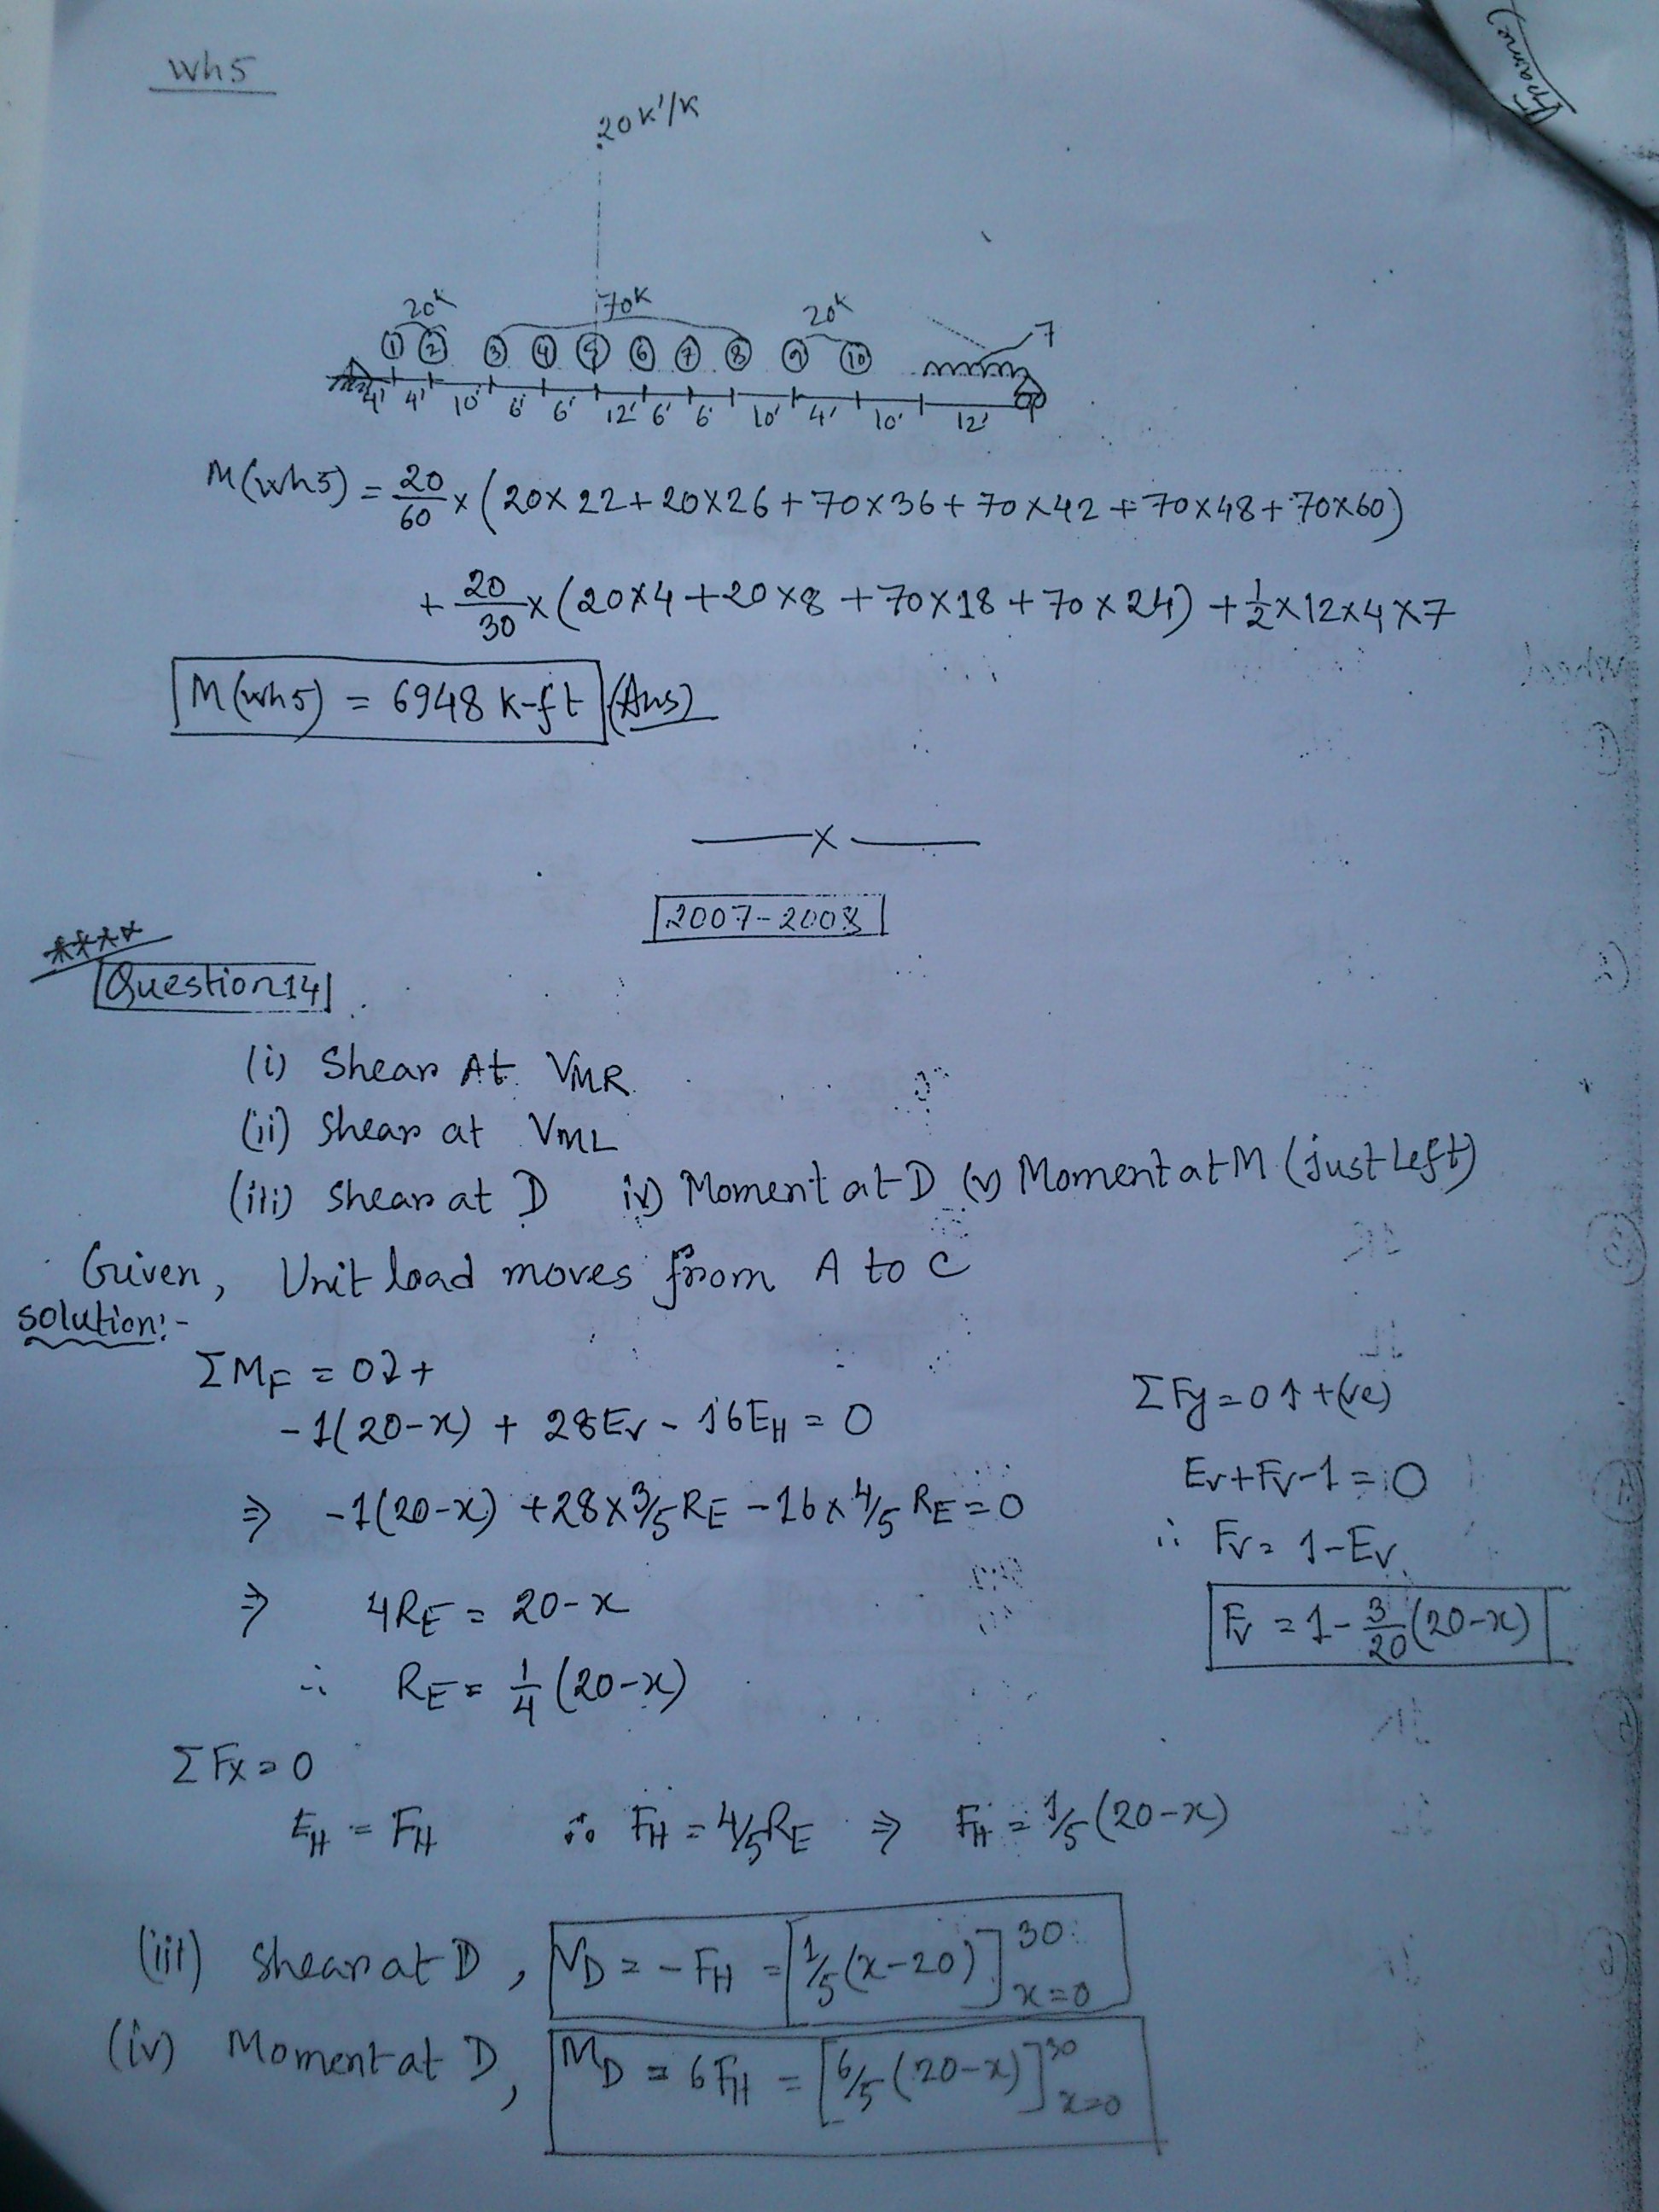 (Frame)
Wh5
20K'/K
20K 70K 20K
1 2 3 4 5 6 7 8 9 10 7
4' 4' 10' 6' 6' 12' 6' 6' 10' 4' 10' 12'
M(wh5) = 20/60 × (20×22+20×26+70×36+70×42+70×48+70×60)
+ 20/30 × (20×4+20×8+70×18+70×24) + 1/2×12×4×7
M(wh5) = 6948 K-ft (Ans)
X
2007-2008
****
Question 14
(i) Shear At VMR
(ii) Shear at VML
(iii) Shear at D iv) Moment at D (v) Moment at M (just Left)
Given, Unit load moves from A to C
Solution:-
ΣMF = 0 ↻+
-1(20-x) + 28Ev - 16EH = 0
⇒ -1(20-x) + 28×3/5 RE - 16×4/5 RE = 0
⇒ 4RE = 20-x
∴ RE = 1/4 (20-x)
ΣFy = 0 ↑ +(ve)
Ev+Fv-1 = 0
∴ Fv = 1-Ev
Fv = 1 - 3/20 (20-x)
ΣFx = 0
EH = FH ∴ FH = 4/5 RE ⇒ FH = 1/5 (20-x)
(iii) Shear at D, VD = -FH = [1/5 (x-20)] 30 x=0
(iv) Moment at D, MD = 6FH = [6/5 (20-x)] 30 x=0